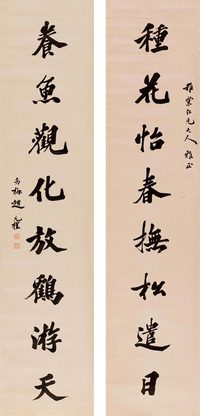 種花怡春撫松遣日
養魚觀化放鶴游天